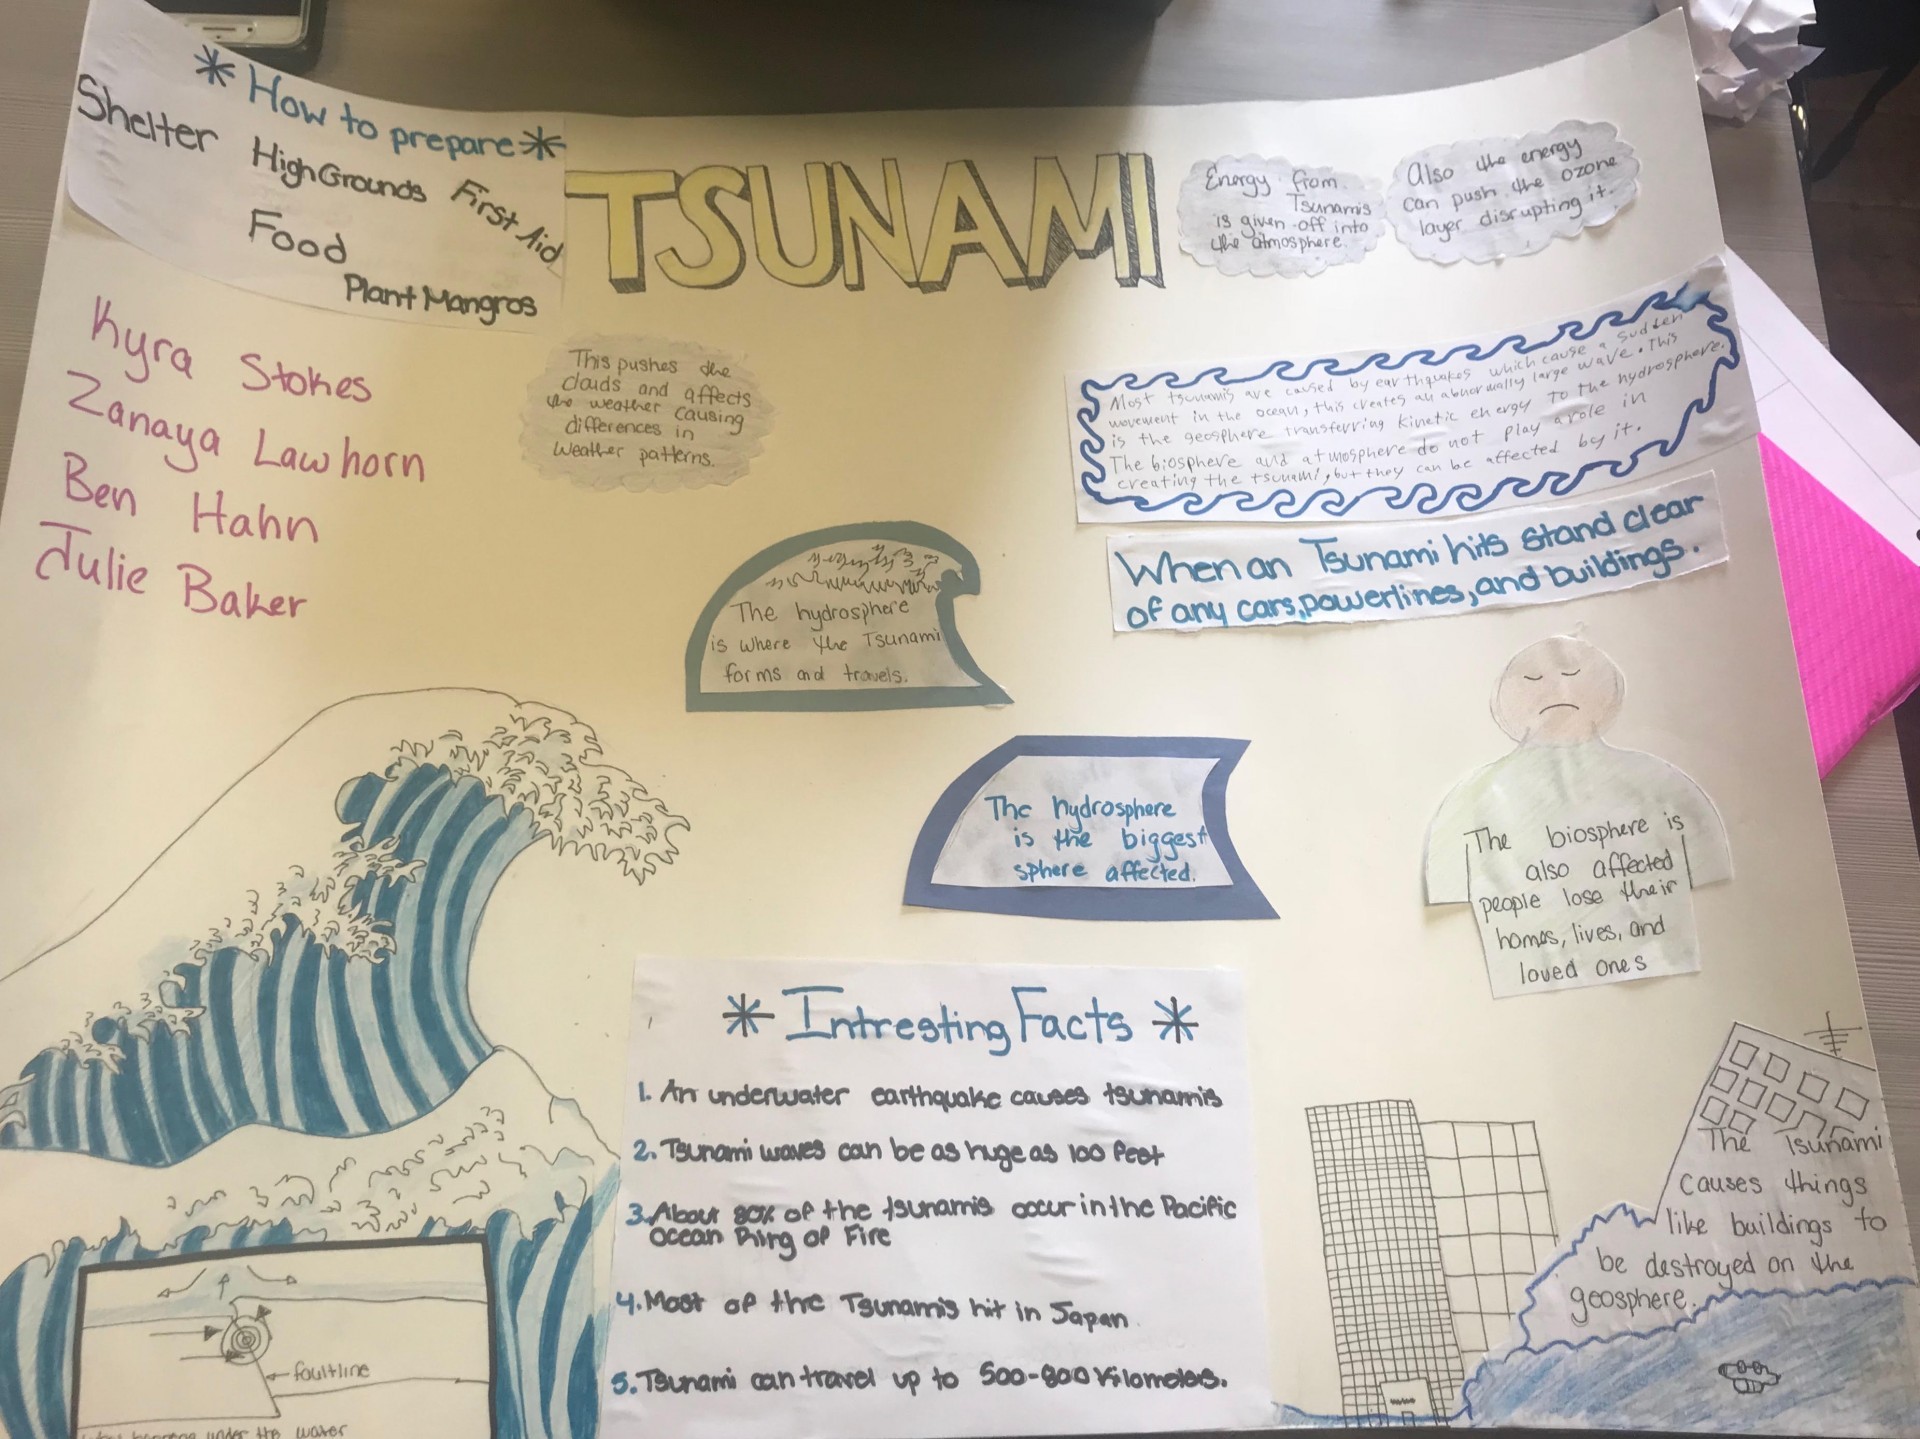 * How to prepare *
Shelter
High Grounds
First Aid
Food
Plant Mangros
TSUNAMI
Energy from
Tsunamis
is given off into
the atmosphere.
Also the energy
can push the ozone
layer disrupting it.
Kyra Stokes
Zanaya Lawhorn
Ben Hahn
Julie Baker
This pushes the
clouds and affects
the weather causing
differences in
weather patterns.
Most tsunamis are caused by earthquakes which cause a sudden
movement in the ocean, this creates an abnormally large wave. This
is the geosphere transferring kinetic energy to the hydrosphere.
The biosphere and atmosphere do not play a role in
creating the tsunami, but they can be affected by it.
When an Tsunami hits stand clear
of any cars, powerlines, and buildings.
The hydrosphere
is where the Tsunami
forms and travels.
The hydrosphere
is the biggest
sphere affected.
The biosphere is
also affected
people lose their
homes, lives, and
loved ones
* Intresting Facts *
1. An underwater earthquake causes tsunamis
2. Tsunami waves can be as huge as 100 feet
3. About 80% of the tsunamis occur in the Pacific
Ocean Ring of Fire
4. Most of the Tsunamis hit in Japan
5. Tsunami can travel up to 500-800 Kilometers.
The Tsunami
causes things
like buildings to
be destroyed on the
geosphere.
faultline
under the water